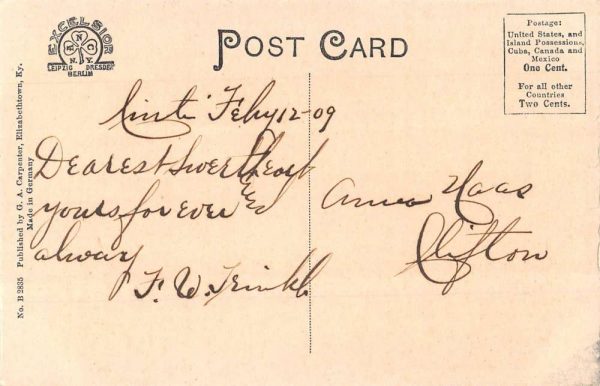 EXCELSIOR
N
K C
N.Y.
LEIPZIG DRESDEN
BERLIN
POST CARD
Postage:
United States, and
Island Possessions,
Cuba, Canada and
Mexico
One Cent.
For all other
Countries
Two Cents.
No. B 2835 Published by G. A. Carpenter, Elizabethtown, Ky.
Made in Germany
Feby 12-09
Dearest Sweetheart
yours forever and
always
F. W.
Anna Haas
Clifton